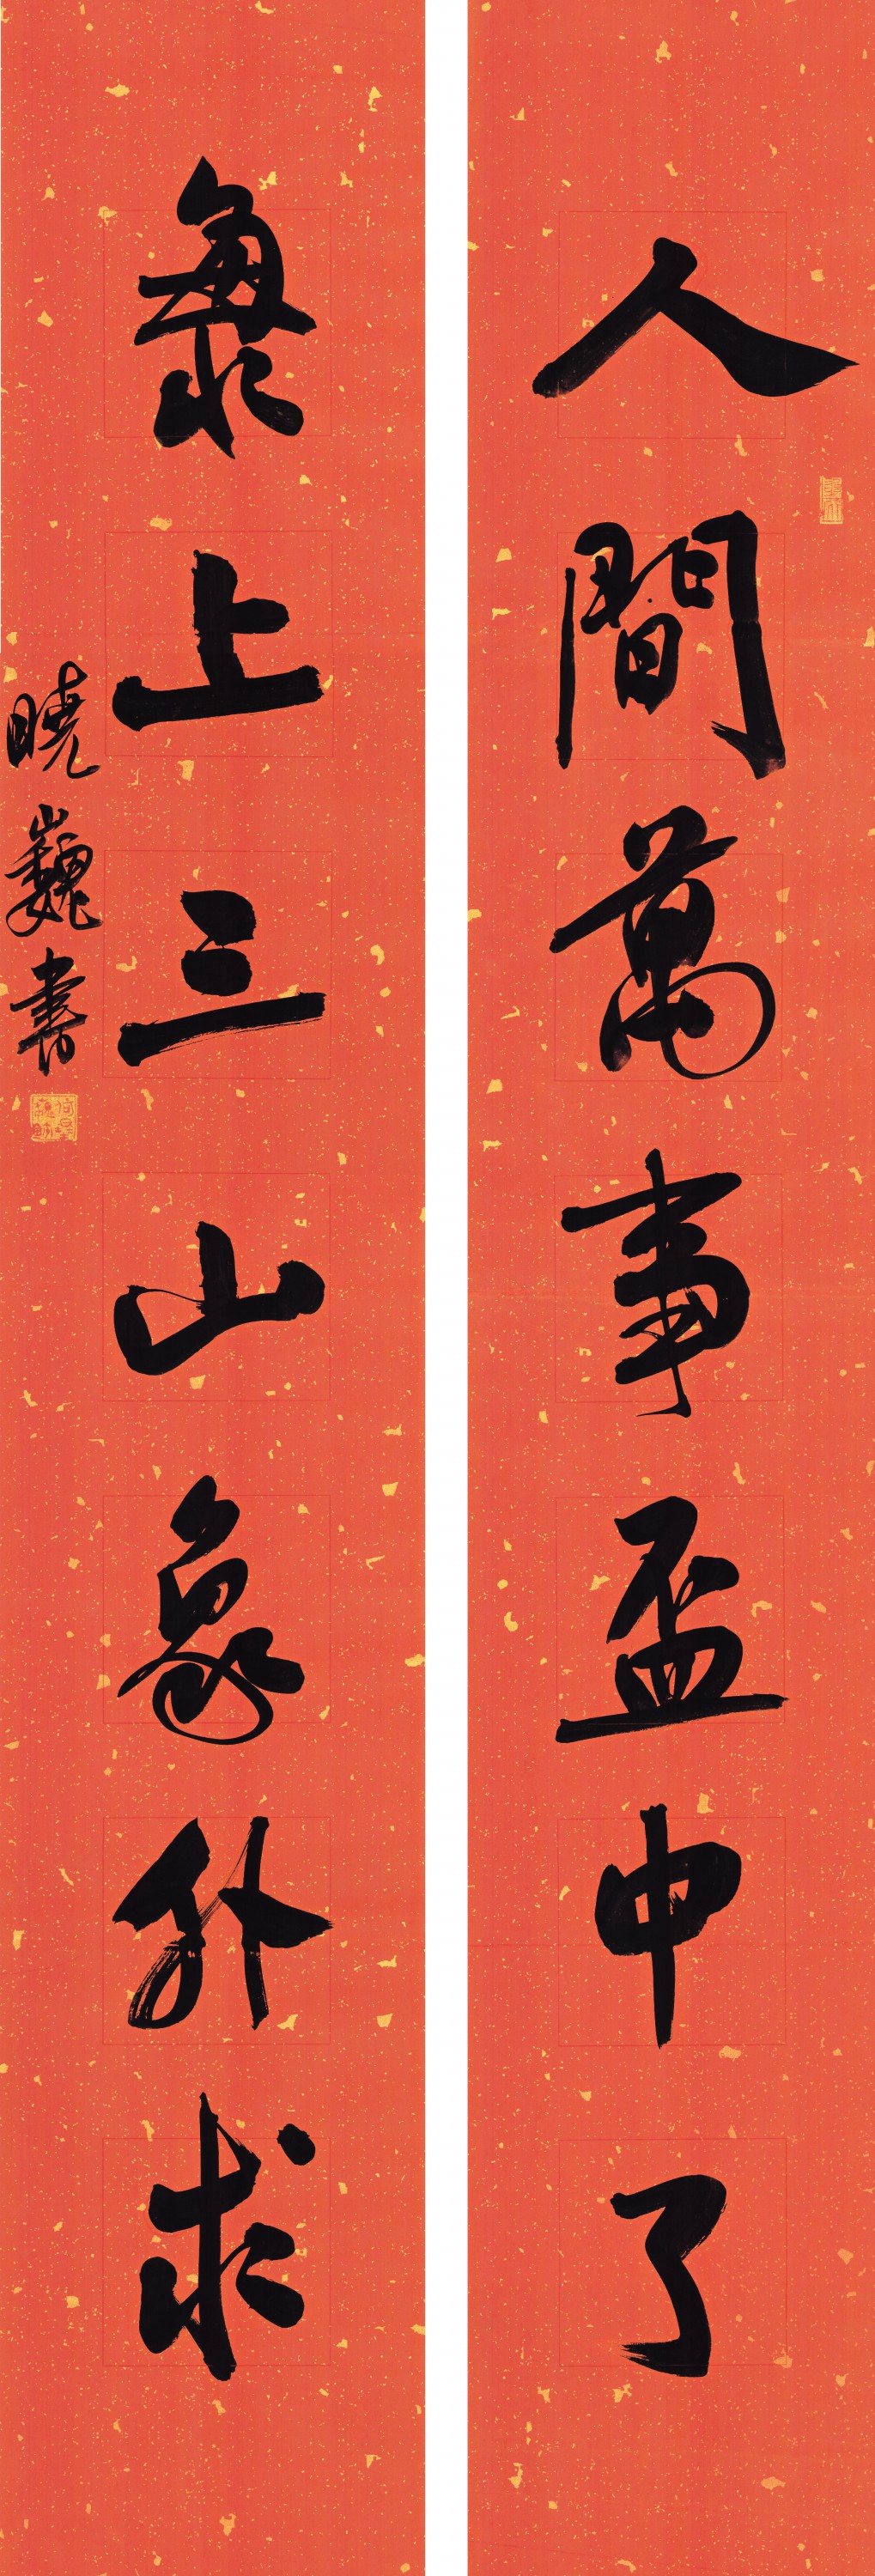 人間萬事盃中了
海上三山象外求
曉巍書